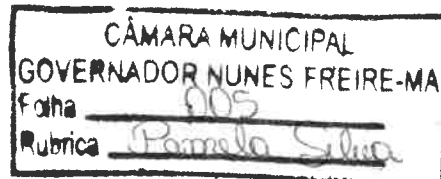 CÂMARA MUNICIPAL
GOVERNADOR NUNES FREIRE-MA
Folha 005
Rubrica Pamela Silva